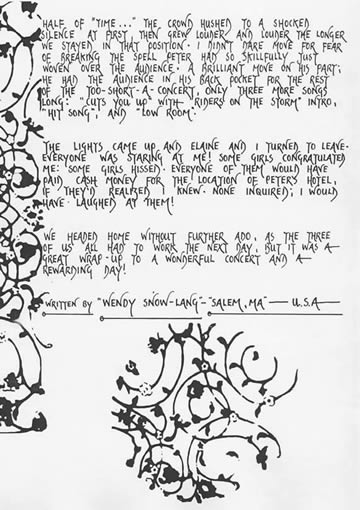 HALF OF "TIME..." THE CROWD HUSHED TO A SHOCKED
SILENCE AT FIRST, THEN GREW LOUDER AND LOUDER THE LONGER
WE STAYED IN THAT POSITION. I DIDN'T DARE MOVE FOR FEAR
OF BREAKING THE SPELL PETER HAD SO SKILLFULLY JUST
WOVEN OVER THE AUDIENCE. A BRILLIANT MOVE ON HIS PART;
HE HAD THE AUDIENCE IN HIS BACK POCKET FOR THE REST
OF THE TOO-SHORT-A-CONCERT, ONLY THREE MORE SONGS
LONG: "CUTS YOU UP" WITH "RIDERS ON THE STORM" INTRO,
"HIT SONG", AND "LOW ROOM".
THE LIGHTS CAME UP AND ELAINE AND I TURNED TO LEAVE.
EVERYONE WAS STARING AT ME! SOME GIRLS CONGRATULATED
ME. SOME GIRLS HISSED. EVERYONE OF THEM WOULD HAVE
PAID CASH MONEY FOR THE LOCATION OF PETER'S HOTEL,
IF THEY'D REALIZED I KNEW. NONE INQUIRED; I WOULD
HAVE LAUGHED AT THEM!
WE HEADED HOME WITHOUT FURTHER ADO, AS THE THREE
OF US ALL HAD TO WORK THE NEXT DAY, BUT IT WAS A
GREAT WRAP-UP TO A WONDERFUL CONCERT AND A
REWARDING DAY!
WRITTEN BY "WENDY SNOW-LANG"-"SALEM, MA" — U.S.A